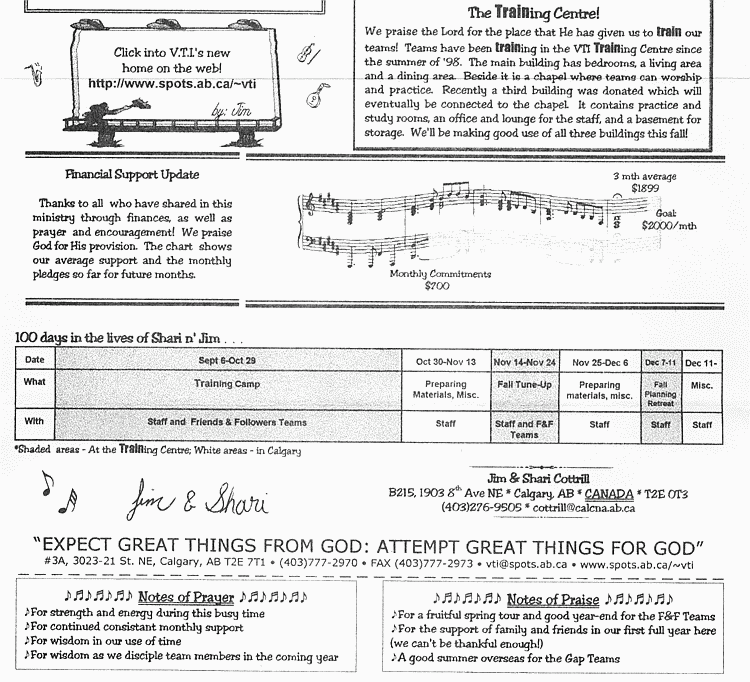 Click into V.T.I.'s new
home on the web!
http://www.spots.ab.ca/~vti
by: Jim
The Training Centre!
We praise the Lord for the place that He has given us to train our
teams! Teams have been training in the VTI Training Centre since
the summer of '98. The main building has bedrooms, a living area
and a dining area. Beside it is a chapel where teams can worship
and practice. Recently a third building was donated which will
eventually be connected to the chapel. It contains practice and
study rooms, an office and lounge for the staff, and a basement for
storage. We'll be making good use of all three buildings this fall!
Financial Support Update
Thanks to all who have shared in this
ministry through finances, as well as
prayer and encouragement! We praise
God for His provision. The chart shows
our average support and the monthly
pledges so far for future months.
3 mth average
$1899
Goal:
$2000/mth
Monthly Commitments
$700
100 days in the lives of Shari n' Jim . . .
Date Sept 6-Oct 29 Oct 30-Nov 13 Nov 14-Nov 24 Nov 25-Dec 6 Dec 7-11 Dec 11-
What Training Camp Preparing Materials, Misc. Fall Tune-Up Preparing materials, misc. Fall Planning Retreat Misc.
With Staff and Friends & Followers Teams Staff Staff and F&F Teams Staff Staff Staff
*Shaded areas - At the Training Centre; White areas - in Calgary
Jim & Shari
Jim & Shari Cottrill
B215, 1903 8th Ave NE * Calgary, AB * CANADA * T2E 0T3
(403)276-9505 * cottrill@calcna.ab.ca
"EXPECT GREAT THINGS FROM GOD: ATTEMPT GREAT THINGS FOR GOD"
#3A, 3023-21 St. NE, Calgary, AB T2E 7T1 • (403)777-2970 • FAX (403)777-2973 • vti@spots.ab.ca • www.spots.ab.ca/~vti
♪♫♪♫♪♫ Notes of Prayer ♪♫♪♫♪♫
♪For strength and energy during this busy time
♪For continued consistant monthly support
♪For wisdom in our use of time
♪For wisdom as we disciple team members in the coming year
♪♫♪♫♪♫ Notes of Praise ♪♫♪♫♪♫
♪For a fruitful spring tour and good year-end for the F&F Teams
♪For the support of family and friends in our first full year here
(we can't be thankful enough!)
♪A good summer overseas for the Gap Teams